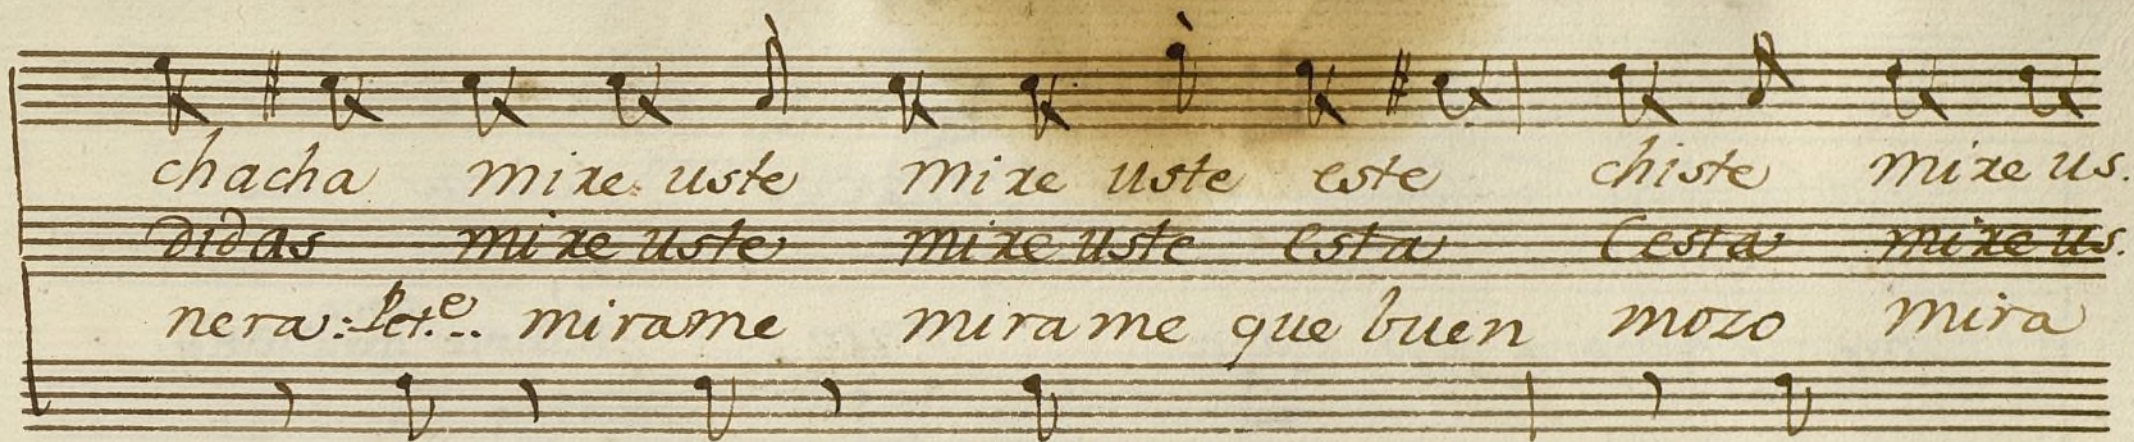 chacha mire uste mire uste este chiste mire us.
didas mire uste mire uste esta Cesta mire us.
nera: mirame mirame que buen mozo mira